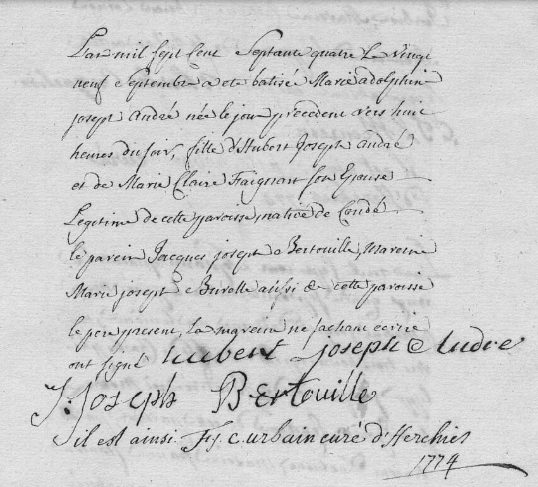 L'an mil sept cent Septante quatre le vingt
neuf Septembre a eté batisé Marie adolphin
joseph andré née le jour precedent vers huit
heures du soir, fille d'Hubert Joseph andré
et de Marie Claire Faignart son Epouse
Legitime de cette paroisse, native de Condé
le parein Jacques joseph Bertouille, Mareine
Marie joseph Burelle aussi de cette paroisse
le pere present, la mareine ne sachant ecrire
ont signé hubert joseph Andre
J: joseph Bertouille
il est ainsi F. J. C. urbain curé d'Herchies
1774